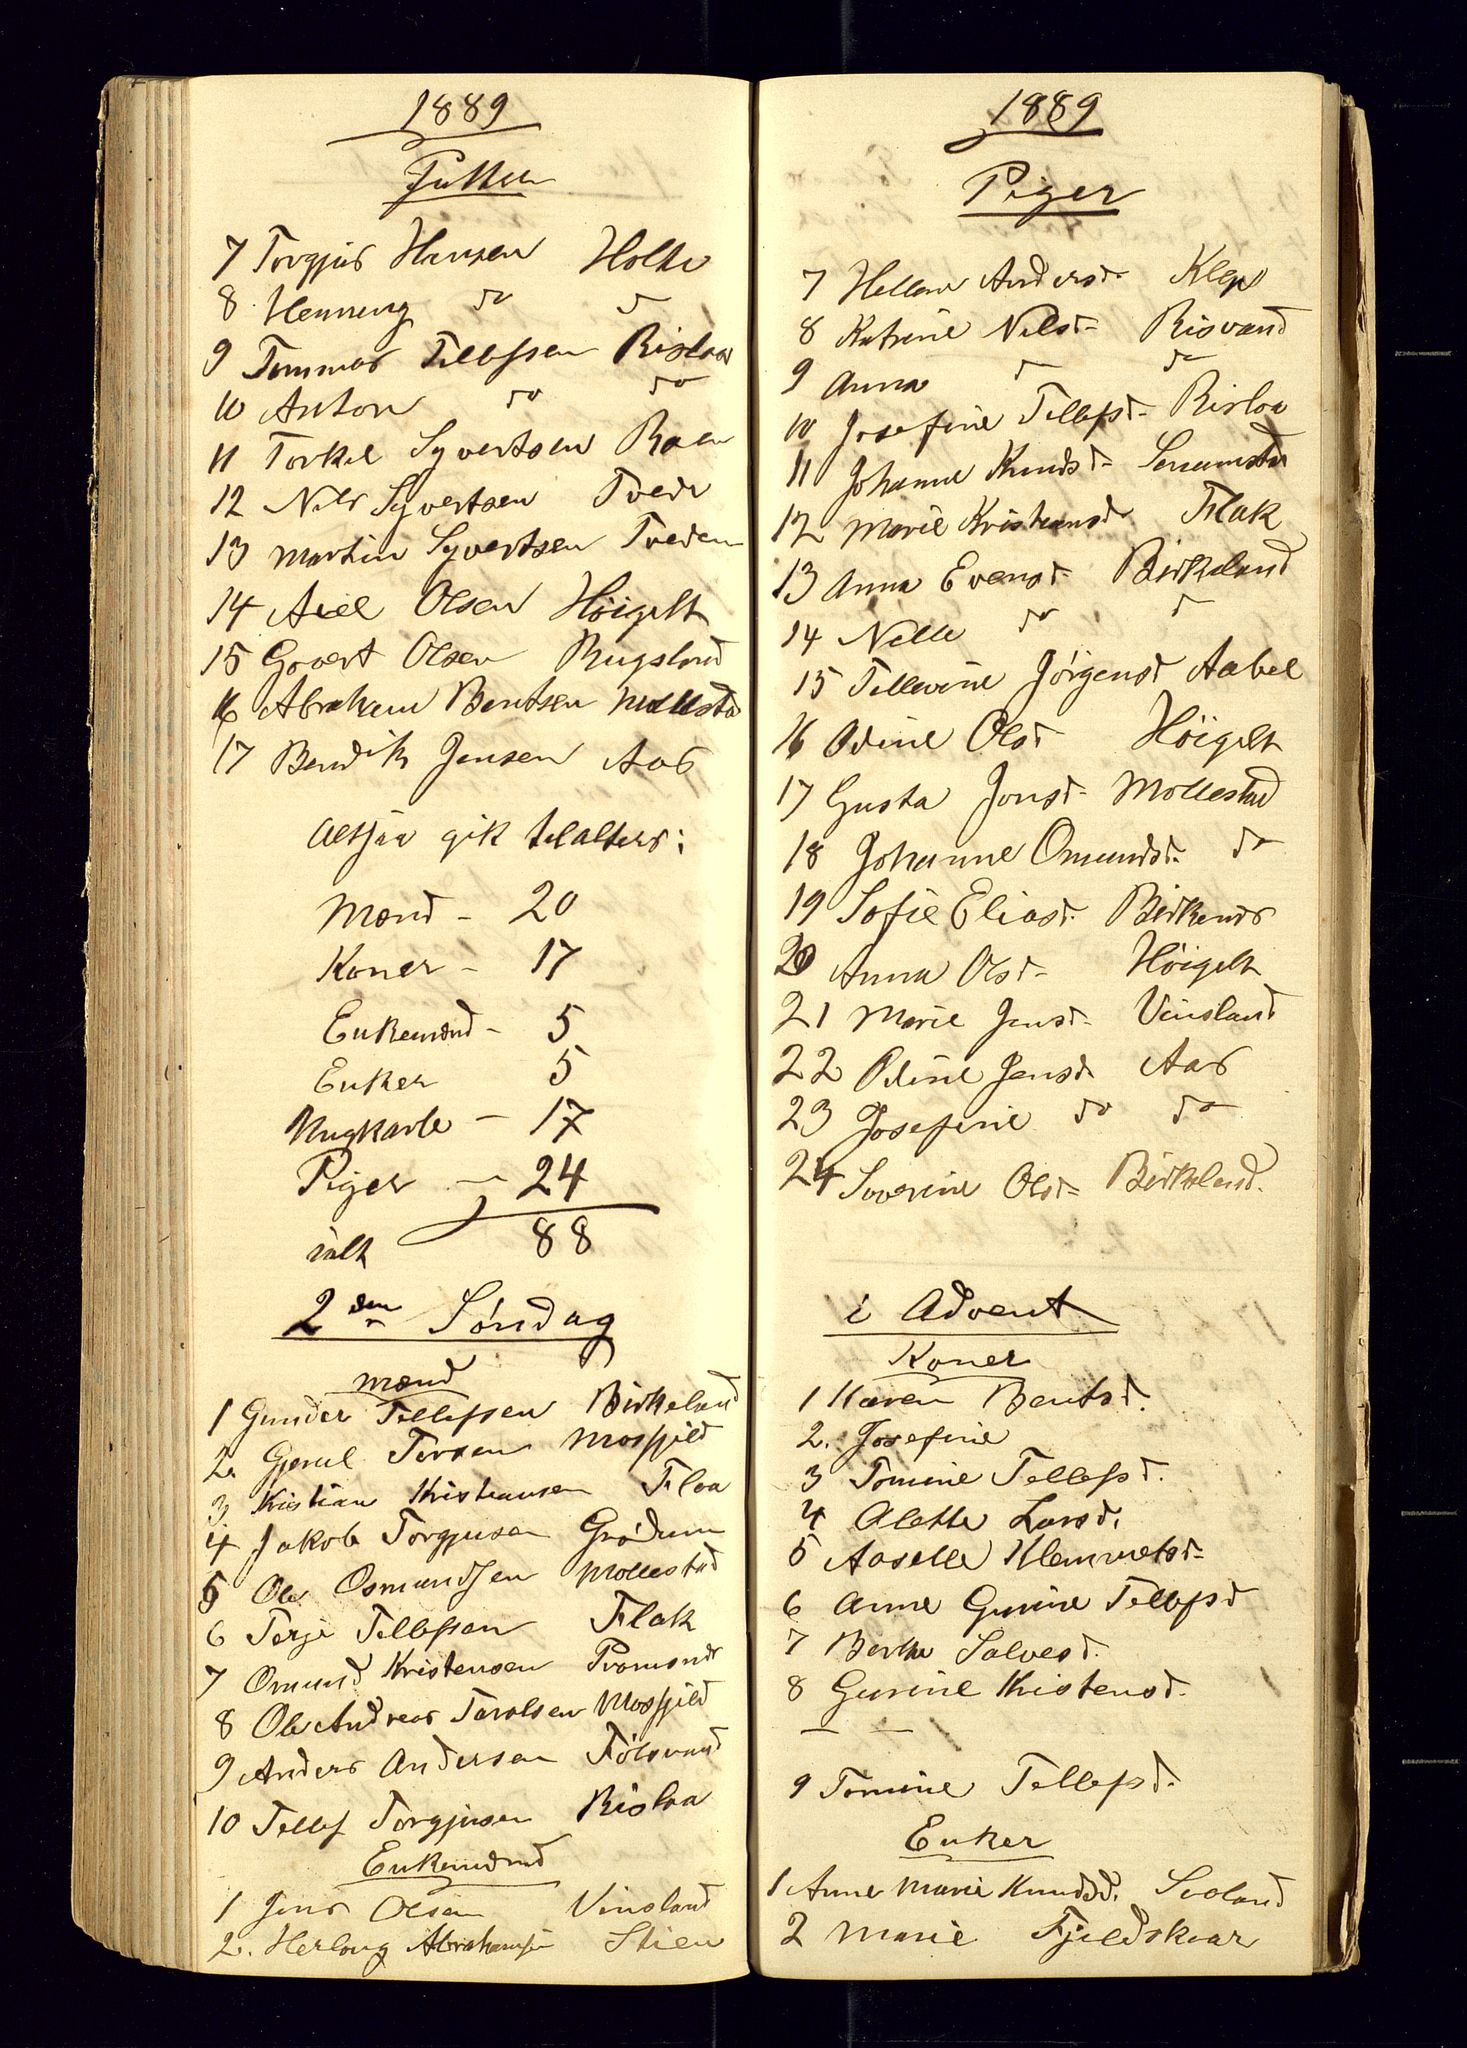 1889
7 Torgjus Hansen Holte
8 Henning do do
9 Tommas Tellefsen Risloa
10 Anton do do
11 Torkel Syvertsen Roen
12 Nils Syvertsen Tvede
13 Martin Syvertsen Tveden
14 Axel Olsen Höigilt
15 Govert Olsen Rugsland
16 Abraham Bentsen Mollestad
17 Bendik Jensen Aas
Altsaa gik tilalters:
Mænd - 20
Koner - 17
Enkemænd - 5
Enker 5
Ungkarle - 17
Piger - 24
ialt 88
2den Søndag
Mænd
1 Gunder Tellefsen Birkeland
2. Gjerul Tersen Mosfjeld
3 Kristian Kristiansen Floa
4 Jakob Torgjusen Grødum
5 Ole Osmundsen Mollestad
6 Terje Tellefsen Flak
7 Omund Kristensen
8 Ole Andreas Taralsen Mosfjeld
9 Anders Andersen Følsvand
10 Tellef Torgjusen Risloa
Enkemænd
1 Jens Olsen Vinsland
2. Herlaug Abrahamsen Stien
1889
Piger
7 Hellene Andersd. Klep
8 Katrine Nilsd. Risvand
9 Anna do do
10 Josefine Tellefsd. Risloa
11 Johanne Knudsd.
12 Marie Kristiansd. Flak
13 Anna Evensd. Birkeland
14 Nille do do
15 Tellevine Jørgensd Aabel
16 Odine Olsd Höigilt
17 Gusta Jonsd. Mollestad
18 Johanne Omundsd. do
19 Sofie Eliasd. Birkenes
20 Anna Olsd. Höigilt
21 Marie Jensd. Vinsland
22 Odine Jensd. Aas
23 Josefine do do
24 Severine Olsd. Birkeland.
i Advent
Koner
1 Karen Bentsd.
2. Josefine
3 Tomine Tellefsd.
4 Alette Larsd.
5 Aaselle Klemmetsd.
6 Anne Gurine Tellefsd
7 Berthe Salvesd.
8 Gurine Kristensd.
— —
9 Tomine Tellefsd.
Enker
1 Anne Marie Knudsd. Svaland
2 Marie Fjeldskaar